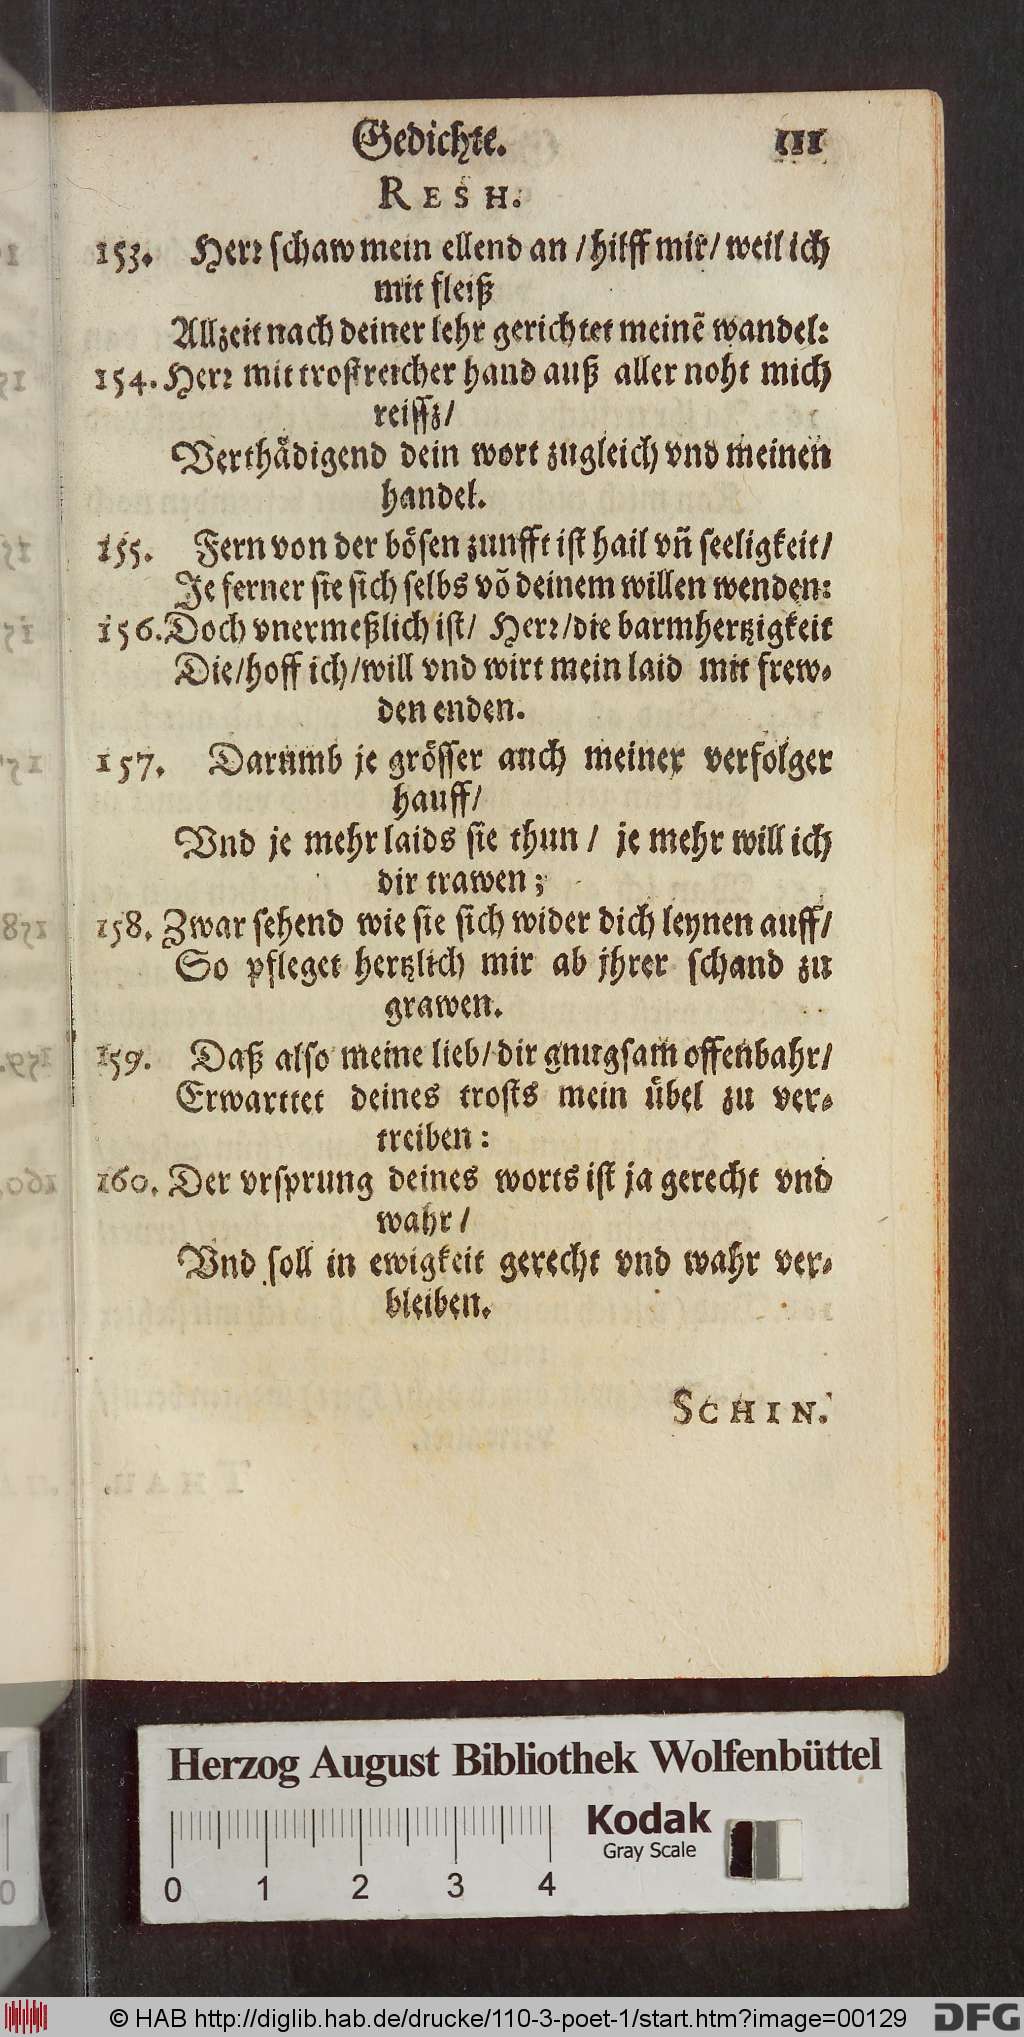 Gedichte. 111
RESH.
153. Herꝛ schaw mein ellend an / hilff mir / weil ich
mit fleiß
Allzeit nach deiner lehr gerichtet meinē wandel:
154. Herꝛ mit trostreicher hand auß aller noht mich
reissz /
Verthädigend dein wort zugleich vnd meinen
handel.
155. Fern von der bösen zunfft ist hail vn̄ seeligkeit /
Je ferner sie sich selbs vō deinem willen wenden:
156. Doch vnermeßlich ist / Herꝛ / die barmhertzigkeit
Die / hoff ich / will vnd wirt mein laid mit frew-
den enden.
157. Darumb je grösser auch meiner verfolger
hauff /
Vnd je mehr laids sie thun / je mehr will ich
dir trawen;
158. Zwar sehend wie sie sich wider dich leynen auff /
So pfleget hertzlich mir ab jhrer schand zu
grawen.
159. Daß also meine lieb / dir gnugsam offenbahr /
Erwarttet deines trosts mein übel zu ver-
treiben:
160. Der vrsprung deines worts ist ja gerecht vnd
wahr /
Vnd soll in ewigkeit gerecht vnd wahr ver-
bleiben.
SCHIN.
Herzog August Bibliothek Wolfenbüttel
Kodak
Gray Scale
0 1 2 3 4
© HAB http://diglib.hab.de/drucke/110-3-poet-1/start.htm?image=00129
DFG